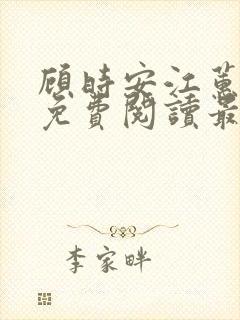 顾時安江蕙
免費閱讀最
李家畔